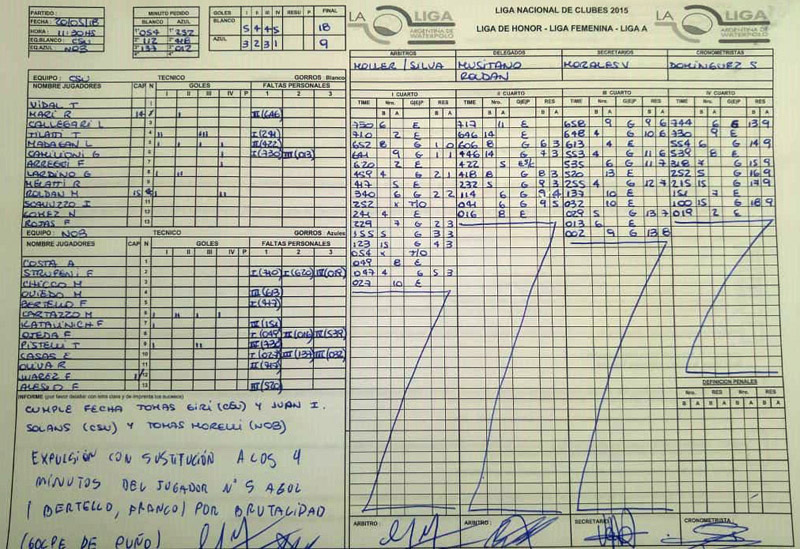 PARTIDO :
FECHA : 20/05/18
HORA : 11:30HS
EQ.BLANCO : CSU
EQ.AZUL : NOB
MINUTO PEDIDO
BLANCO AZUL
1° 054 252
2° 112 418
3° 137 012
GOLES I II III IV RESU P FINAL
BLANCO 5 4 4 5 18
AZUL 3 2 3 1 9
LA LIGA
ARGENTINA DE
WATERPOLO
LIGA NACIONAL DE CLUBES 2015
LIGA DE HONOR - LIGA FEMENINA - LIGA A
LA LIGA
ARGENTINA DE
WATERPOLO
ARBITROS DELEGADOS SECRETARIOS CRONOMETRISTAS
MOLLER / SILVA MUSITANO MORALES V DOMINGUEZ S
ROLDAN
EQUIPO : CSU TECNICO GORROS Blanco
NOMBRE JUGADORES CAP N GOLES FALTAS PERSONALES
I II III IV P 1 2 3
VIDAL T 1
MARI R 2 II(646)
CALLEGARI L 3
TILATTI T 4 I(241)
MADAEAN L 5 II(422)
CAMILIONI G 6 I(730) III(013)
ARREGUI F 7
LARDINO G 8
MELATTI R 9
ROLDAN M 10
SCAVUZZO I 11
GOMEZ N 12
ROJAS F 13
EQUIPO : NOB TECNICO GORROS Azules
NOMBRE JUGADORES CAP N GOLES FALTAS PERSONALES
I II III IV P 1 2 3
COSTA A 1
STRUPENI F 2 I(710) I(620) IV(019)
CHICCO M 3
OVIEDO M 4 III(613)
BERTELLO F 5 I(417)
CARTAZZO M 6
KATALINICH F 7 IV(151)
OJEDA F 8 I(049) II(016) IV(539)
PISTELLI T 9 IV(730)
CASAS E 10 I(027) III(137) III(032)
OLIVA R 11 II(717)
JUAREZ F 12
ALESIO F 13 III(520)
INFORME (por favor detallar con letra clara y de imprenta los sucesos)
CUMPLE FECHA TOMAS EIRI (CSU) Y JUAN I.
SOLANS (CSU) Y TOMAS MORELLI (NOB)
EXPULSIÓN CON SUSTITUCIÓN A LOS 4
MINUTOS DEL JUGADOR N° 5 AZUL
( BERTELLO, FRANCO) POR BRUTALIDAD
(GOLPE DE PUÑO)
I CUARTO
TIME Nro. G|E|P RES
B A B A
730 6 E
710 2 E
652 8 G 1 0
641 9 G 1 1
620 2 E
459 4 G 2 1
417 5 E
340 6 G 2 2
252 x T/O
241 4 E
229 7 G 2 3
155 5 G 3 3
123 15 G 4 3
054 x T/O
049 8 E
047 4 G 5 3
027 10 E
II CUARTO
TIME Nro. G|E|P RES
B A B A
717 11 E
646 14 E
606 8 G 6 3
446 14 G 7 3
422 5
418 8 G 8 3
232 5 G 9 3
114 6 G 9 4
041 6 G 9 5
016 8 E
III CUARTO
TIME Nro. G|E|P RES
B A B A
658 9 G 9 6
648 4 G 10 6
613 4 E
553 4 G 11 6
535 6 G 11 7
520 13 E
255 4 G 12 7
137 10 E
032 10 E
029 5 G 13 7
013 6 E
002 9 G 13 8
IV CUARTO
TIME Nro. G|E|P RES
B A B A
744 6 G 13 9
730 9 E
554 6 G 14 9
539 8 E
318 G 15 9
252 5 G 16 9
215 15 G 17 9
151 7 E
100 15 G 18 9
019 2 E
DEFINICION PENALES
Nro. RES Nro. RES
B A B A B A B A
ARBITRO : ARBITRO : SECRETARIO CRONOMETRISTA